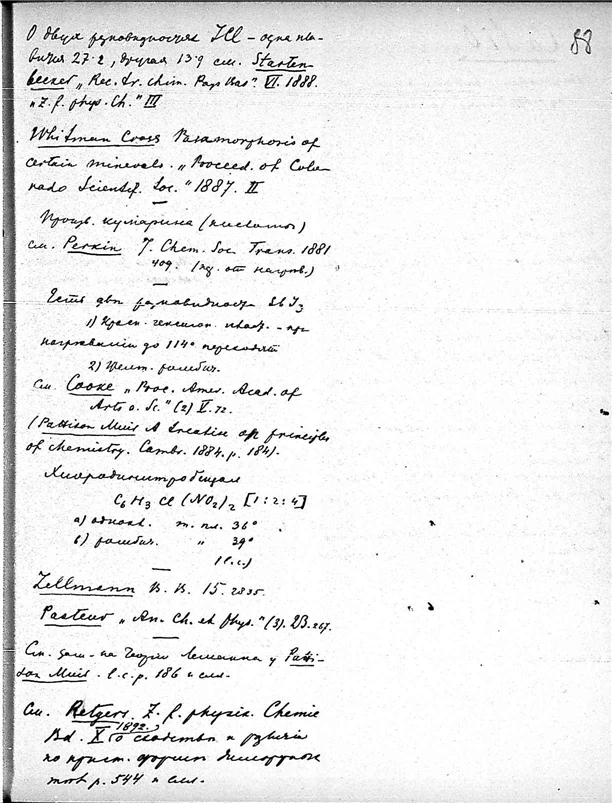 88
О двух разновидностях JCl – одна пла-
вится 27·2, другая 13·9 см. Storten-
becker „Rec. tr. chim. Pays Bas". VI. 1888.
„Z. f. phys. Ch." III
Whitman Cross Paramorphosis of
certain minerals. „Proceed. of Colo-
rado Scientif. Soc." 1887. II
Произв. кумарина
см. Perkin J. Chem. Soc. Trans. 1881
409. (от нагрев.)
Есть две разновидност. SbJ3
1) Красн. гексагон. – при
нагревании до 114° переходят
2) Желт. ромбич.
См. Cooke „Proc. Amer. Acad. of
Arts a. Sc." (2) V. 72.
(Pattison Muir A treatise on principles
of chemistry. Cambr. 1884. p. 184).
Хлородинитробензол
C6 H3 Cl (NO2)2 [1:2:4]
а) т. пл. 36°
в) ромбич. „ 39°
(l.c.)
B. B. 15. 2835.
Pasteur „An. Ch. et phys." (3). 23. 267.
См. Теорию Леманна у Patti-
son Muir. l.c. p. 186 и сл.
См. Retgers. Z. f. physik. Chemie
Bd. X 1892. о сходстве и
по крист. форме
p. 544 и сл.